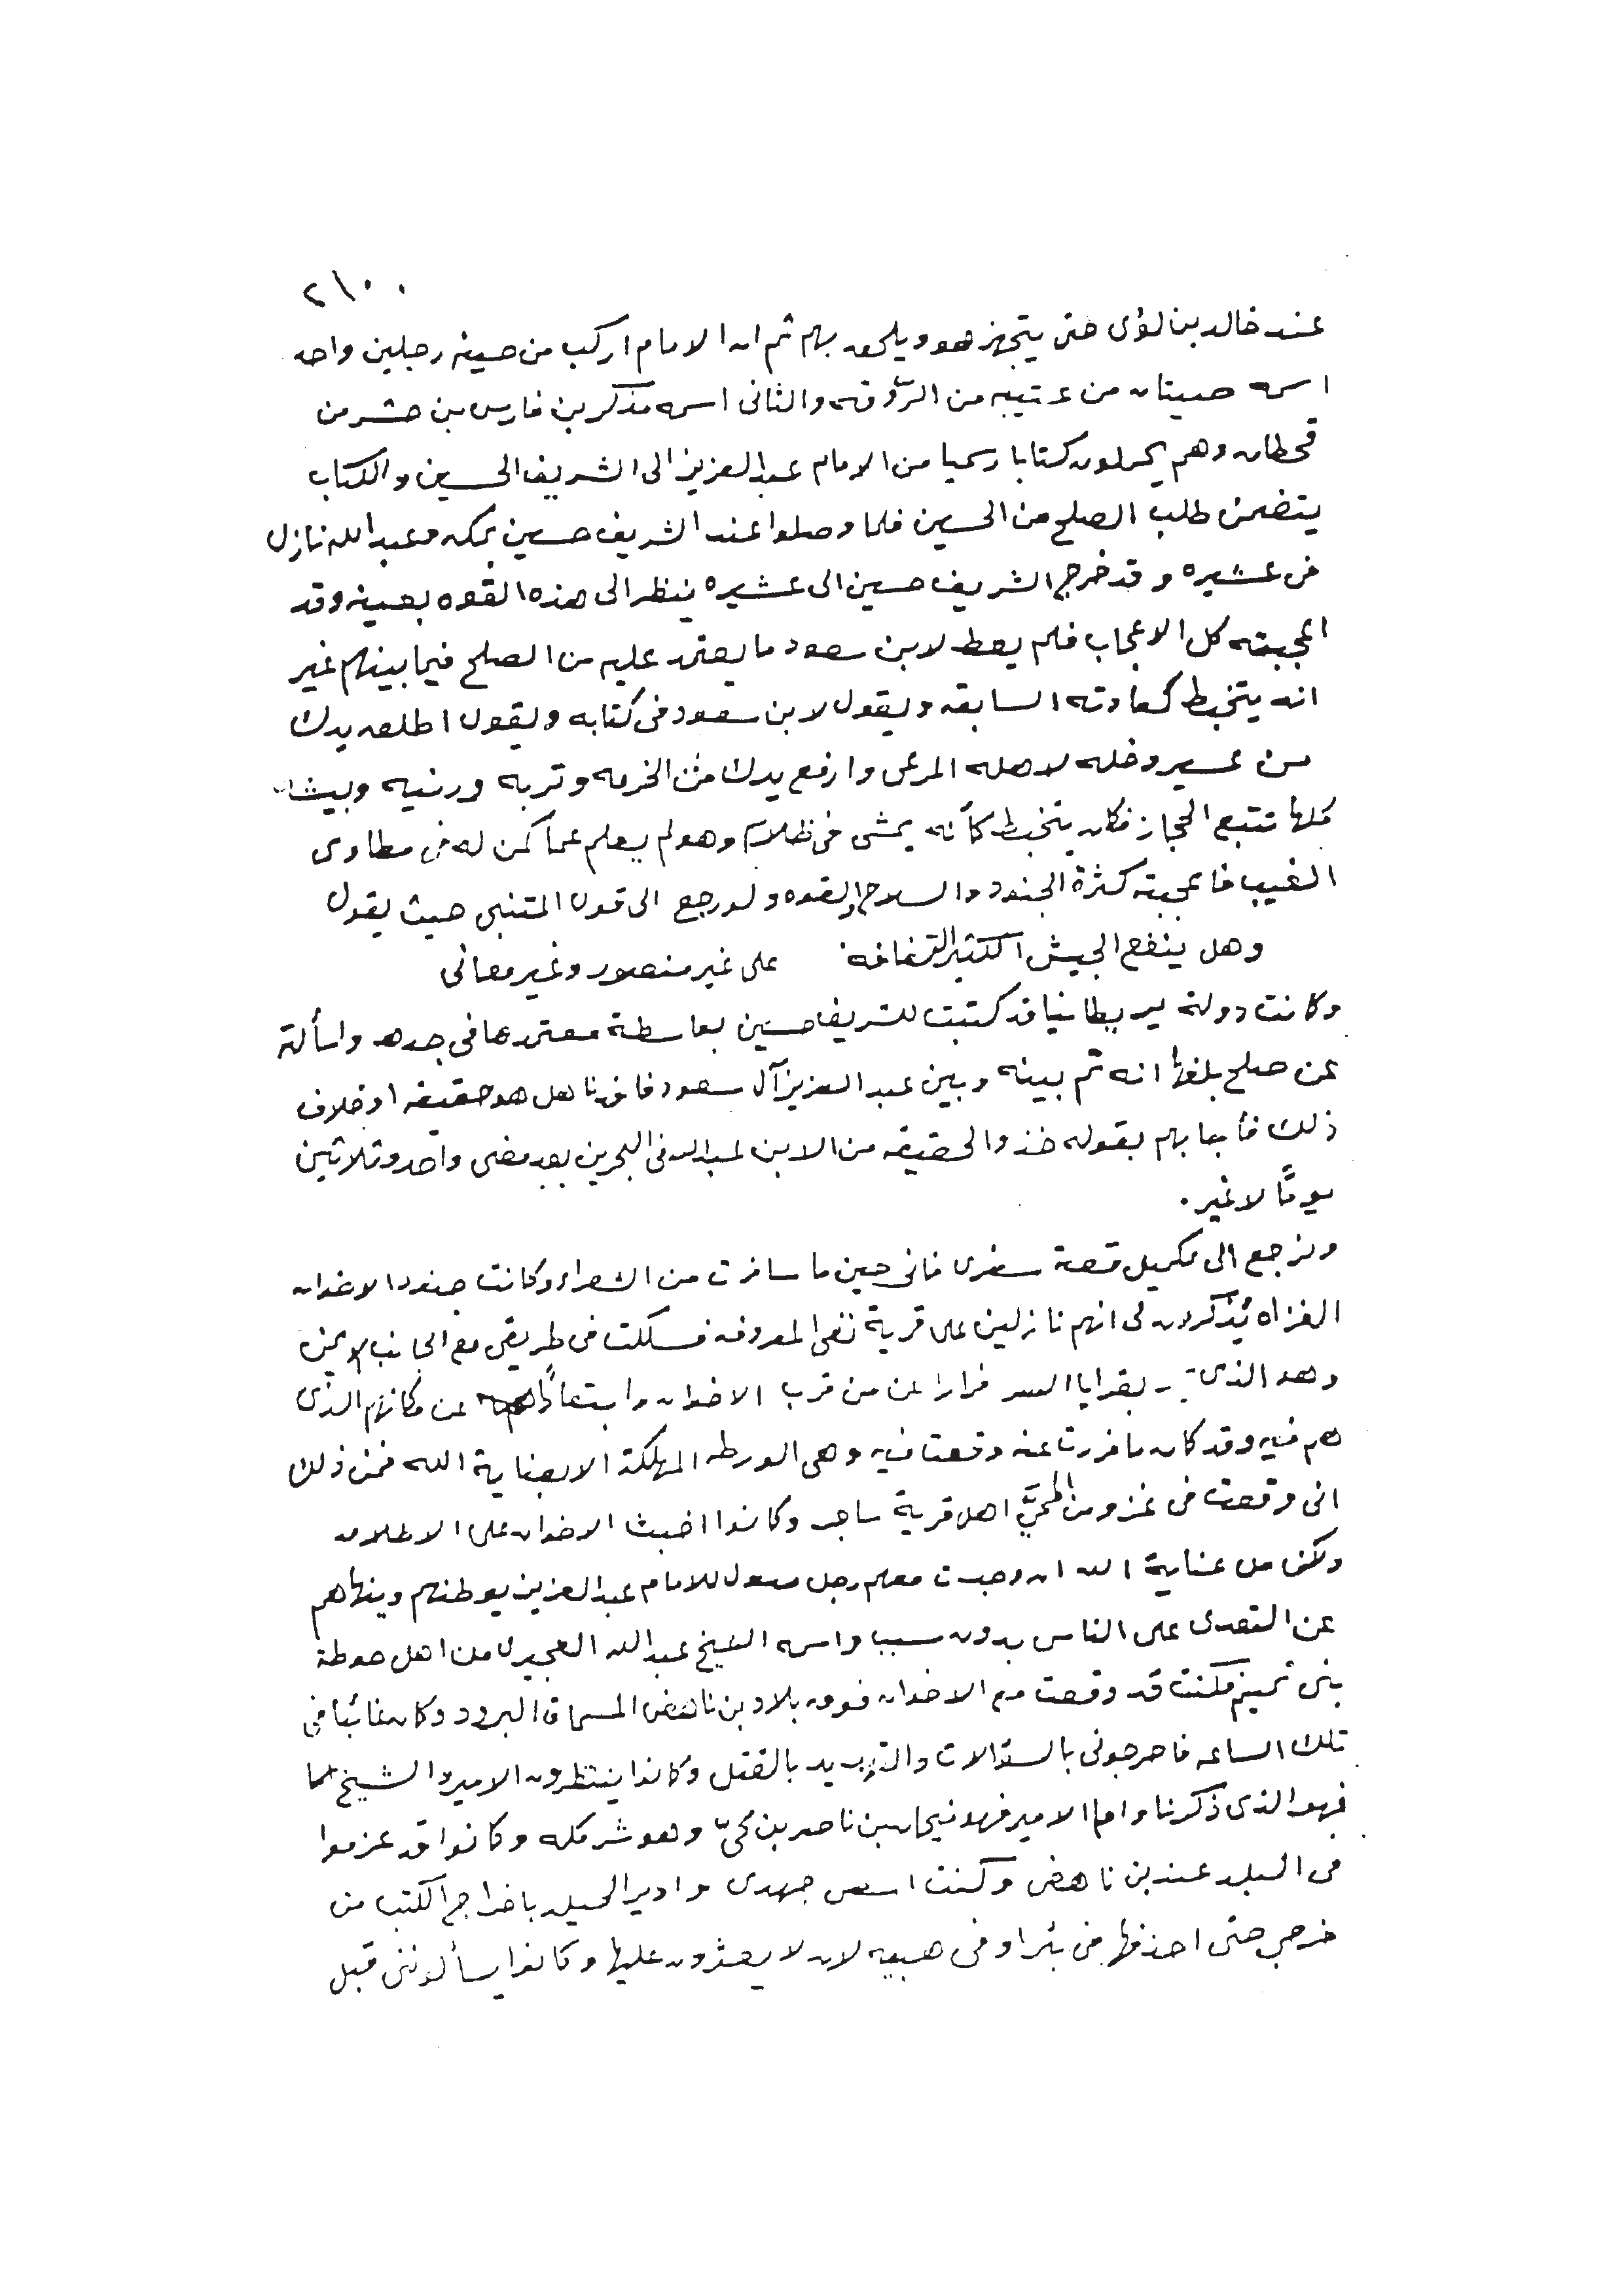 ٢١٠٠
عند خالد بن لؤى حتى يتجهز هو ويلحق بهم ثم ان الامام اركب من حينه رجلين واحد
اسمه صيتان من عتيبه من الروقه والثانى اسمه مذكر بن فارس بن حشر من
قحطان وهم يحملون كتابا رسميا من الامام عبد العزيز الى الشريف الحسين والكتاب
يتضمن طلب الصلح من الحسين فلما وصلوا عند الشريف حسين بمكه وعبد الله نازل
فى عشيره وقد خرج الشريف حسين الى عشيره ينظر الى هذه القوه بعينه وقد
اعجبته كل الاعجاب فلم يعط لابن سعود ما يعتمد عليه من الصلح فيما بينهم غير
انه يتخبط كعادته السابقه ويقول لابن سعود فى كتابه ويقول اطلق يدك
من عسير وخله لاهله المرعى وارفع يدك من الخرمه وتربه ورنيه وبيشه
كلها تتبع الحجاز فكان يتخبط كأنه يمشى فى ظلام وهو لم يعلم عما كمن له فى مطاوى
الغيب فاعجبته كثرة الجنود والسلاح والقوه ولو رجع الى قول المتنبى حيث يقول
وهل ينفع الجيش الكثير التفافه على غير منصور وغير معانى
وكانت دولة بريطانيا قد كتبت للشريف حسين بواسطة معتمدها فى جده واسألته
عن صلح بلغها انه تم بينه وبين عبد العزيز آل سعود فافدنا هل هو حقيقه او خلاف
ذلك فأجابهم بقوله خذوا الحقيقه من الابن عبد الله فى البحرين بعد مضى واحد وثلاثين
يومًا لا غير .
ونرجع الى تكميل قصة سفرى فانى حين ما سافرت من الشعراء وكانت جنود الاخوان
الغزاه يُذكرون لى انهم نازلين على قرية نفى المعروفه فسلكت فى طريقى مع الجانب الايمن
وهو الذى بقرايا السر فرارا عن من قرب الاخوان وابتعادًا عن مكانهم الذى
هم فيه وقد كان ما فررت عنه وقعت فيه وهى الورطه المهلكة الا بعناية الله فمن ذلك
انى وقعت فى غزو من المحيَّا اهل قرية ساجر وكانوا اخبث الاخوان على الاطلاق
ولكن من عناية الله ان وجدت معهم رجل رسول للامام عبد العزيز يوطنهم وينهاهم
عن التعدى على الناس بدون سبب واسمه الشيخ عبد الله العجيرى من اهل حوطة
بنى تميم فكنت قد وقعت مع الاخوان فوق بلاد بن ناهض المسماة البرود وكان غائبا فى
تلك الساعه فاحرجونى بالسؤالات والتهديد بالقتل وكانوا ينتظرون الامير والشيخ اما
فهو الذى ذكرنا واما الامير فهو نيحان بن ناصر بن محيّا وهو شر مكه وكانوا قد عزموا
فى البلد عند بن ناهض وكنت اسعى جهدى وادير الحيله باخراج الكتب من
خرجى حتى احذفها فى بئر او فى هبيه لان لا يعثرون عليها وكانوا يسألوننى قبل